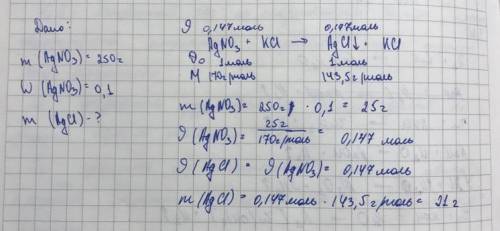 Дано:
m (AgNO₃) = 250г
W (AgNO₃) = 0,1
m (AgCl) - ?
ϑ 0,147моль 0,147моль
AgNO₃ + KCl → AgCl↓ + KCl
ϑ₀ 1моль 1моль
M 170г/моль 143,5г/моль
m (AgNO₃) = 250г · 0,1 = 25г
ϑ (AgNO₃) = 25г / 170г/моль = 0,147 моль
ϑ (AgCl) = ϑ (AgNO₃) = 0,147 моль
m (AgCl) = 0,147моль · 143,5 г/моль = 21г